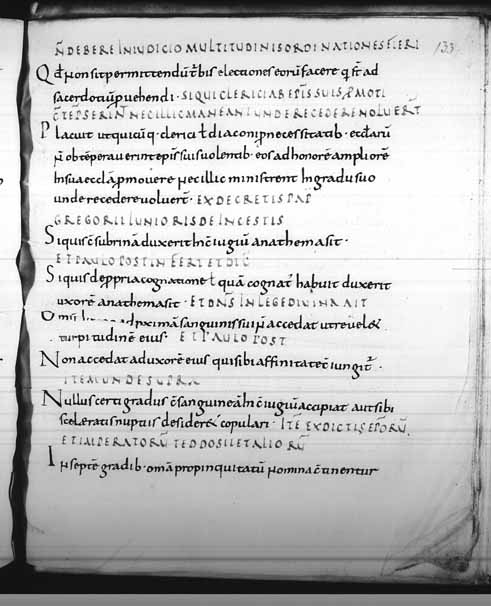 N̄ DEBERE IN IUDICIO MULTITUDINIS ORDINATIONES FIERI 133
Qd̄ non sit permittendū t̄bis electiones eorū facere q̄ st̄ ad
sacerdotiū ꝓuehendi · SI QUI CLERICI AB EP̄IS SUIS
NEC ILLIC MANEANT UNDE RECEDERE NOLUERT̄
Placuit ut quicūq · clerici ł diaconi ꝓ necessitatib · eccl̄arū
n̄ obtēperauerint ep̄is suis uolentib · eos ad honorē ampliorē
in sua eccl̄a ꝓmouere nec illic ministrent in gradu suo
unde recedere noluert̄ · EX DECRETIS PAP̄
GREGORII IUNIORIS DE INCESTIS
Siquis c̄subrinā duxerit in c̄iugiū anathema sit ·
ET PAULO POST
Siquis de ꝓpria cognatione ł quā cognat᷒ habuit duxerit
uxorē anathema sit · ET DN̄S IN LEGE DIVINA AIT
Omis ad ꝓximā sanguinis sui n̄ accedat ut reuelet
turpitudinē eius · ET PAULO POST
Non accedat ad uxorē eius qui sibi affinitate c̄iungit᷒ ·
ITEM UNDE SUPRA
Nullus certi gradus c̄sanguineā in c̄iugiū accipiat aut sibi
sceleratis nuptiis desideret copulari · ITĒ EX DICTIS EP̄ORŪ
ET IMPERATORŪ
In septē gradib · om̄a propinquitatū nomina c̄tinentur